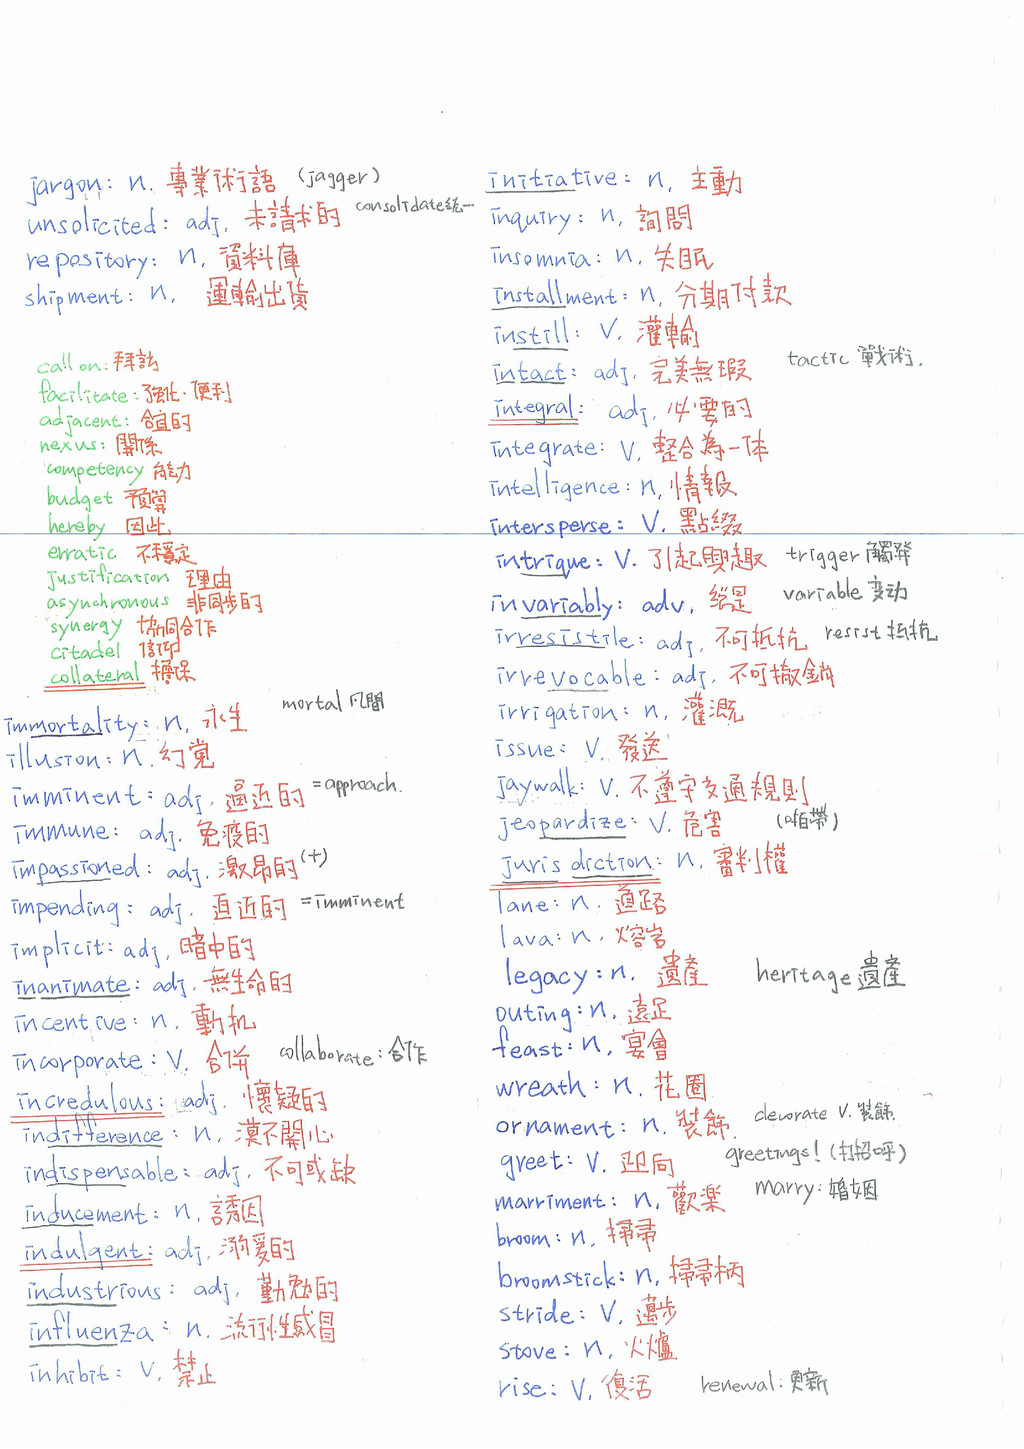 jargon: n. 專業術語 (jagger)
unsolicited: adj. 未請求的 consolidate統一
repository: n. 資料庫
shipment: n. 運輸出貨
call on: 拜訪
facilitate: 強化·便利
adjacent: 合宜的
nexus: 關係
competency 能力
budget 預算
hereby 因此
erratic 不穩定
justification 理由
asynchronous 非同步的
synergy 協同合作
citadel 信仰
collateral 擔保
immortality: n. 永生 mortal 凡間
illusion: n. 幻覺
imminent: adj. 逼近的 =approach.
immune: adj. 免疫的
impassioned: adj. 激昂的(+)
impending: adj. 迫近的 =imminent
implicit: adj. 暗中的
inanimate: adj. 無生命的
incentive: n. 動机
incorporate: v. 合併 collaborate: 合作
incredulous: adj. 懷疑的
indifference: n. 漠不關心
indispensable: adj. 不可或缺
inducement: n. 誘因
indulgent: adj. 溺愛的
industrious: adj. 勤勉的
influenza: n. 流行性感冒
inhibit: v. 禁止
initiative: n. 主動
inquiry: n. 詢問
insomnia: n. 失眠
installment: n. 分期付款
instill: v. 灌輸
intact: adj. 完美無瑕 tactic 戰術.
integral: adj. 必要的
integrate: v. 整合為一体
intelligence: n. 情報
intersperse: v. 點綴
intrique: v. 引起興趣 trigger 觸發
invariably: adv. 總是 variable 变动
irresistile: adj. 不可抵抗 resist 抵抗
irrevocable: adj. 不可撤銷
irrigation: n. 灌溉
issue: v. 發送
jaywalk: v. 不遵守交通規則
jeopardize: v. 危害
juris diction: n. 審判權
lane: n. 道路
lava: n. 熔岩
legacy: n. 遺產 heritage 遺產
outing: n. 遠足
feast: n. 宴會
wreath: n. 花圈
ornament: n. 裝飾. decorate v. 裝飾.
greet: v. 迎向 greetings! (打招呼)
marriment: n. 歡樂 marry: 婚姻
broom: n. 掃帚
broomstick: n. 掃帚柄
stride: v. 邁步
stove: n. 火爐
rise: v. 復活 renewal: 更新